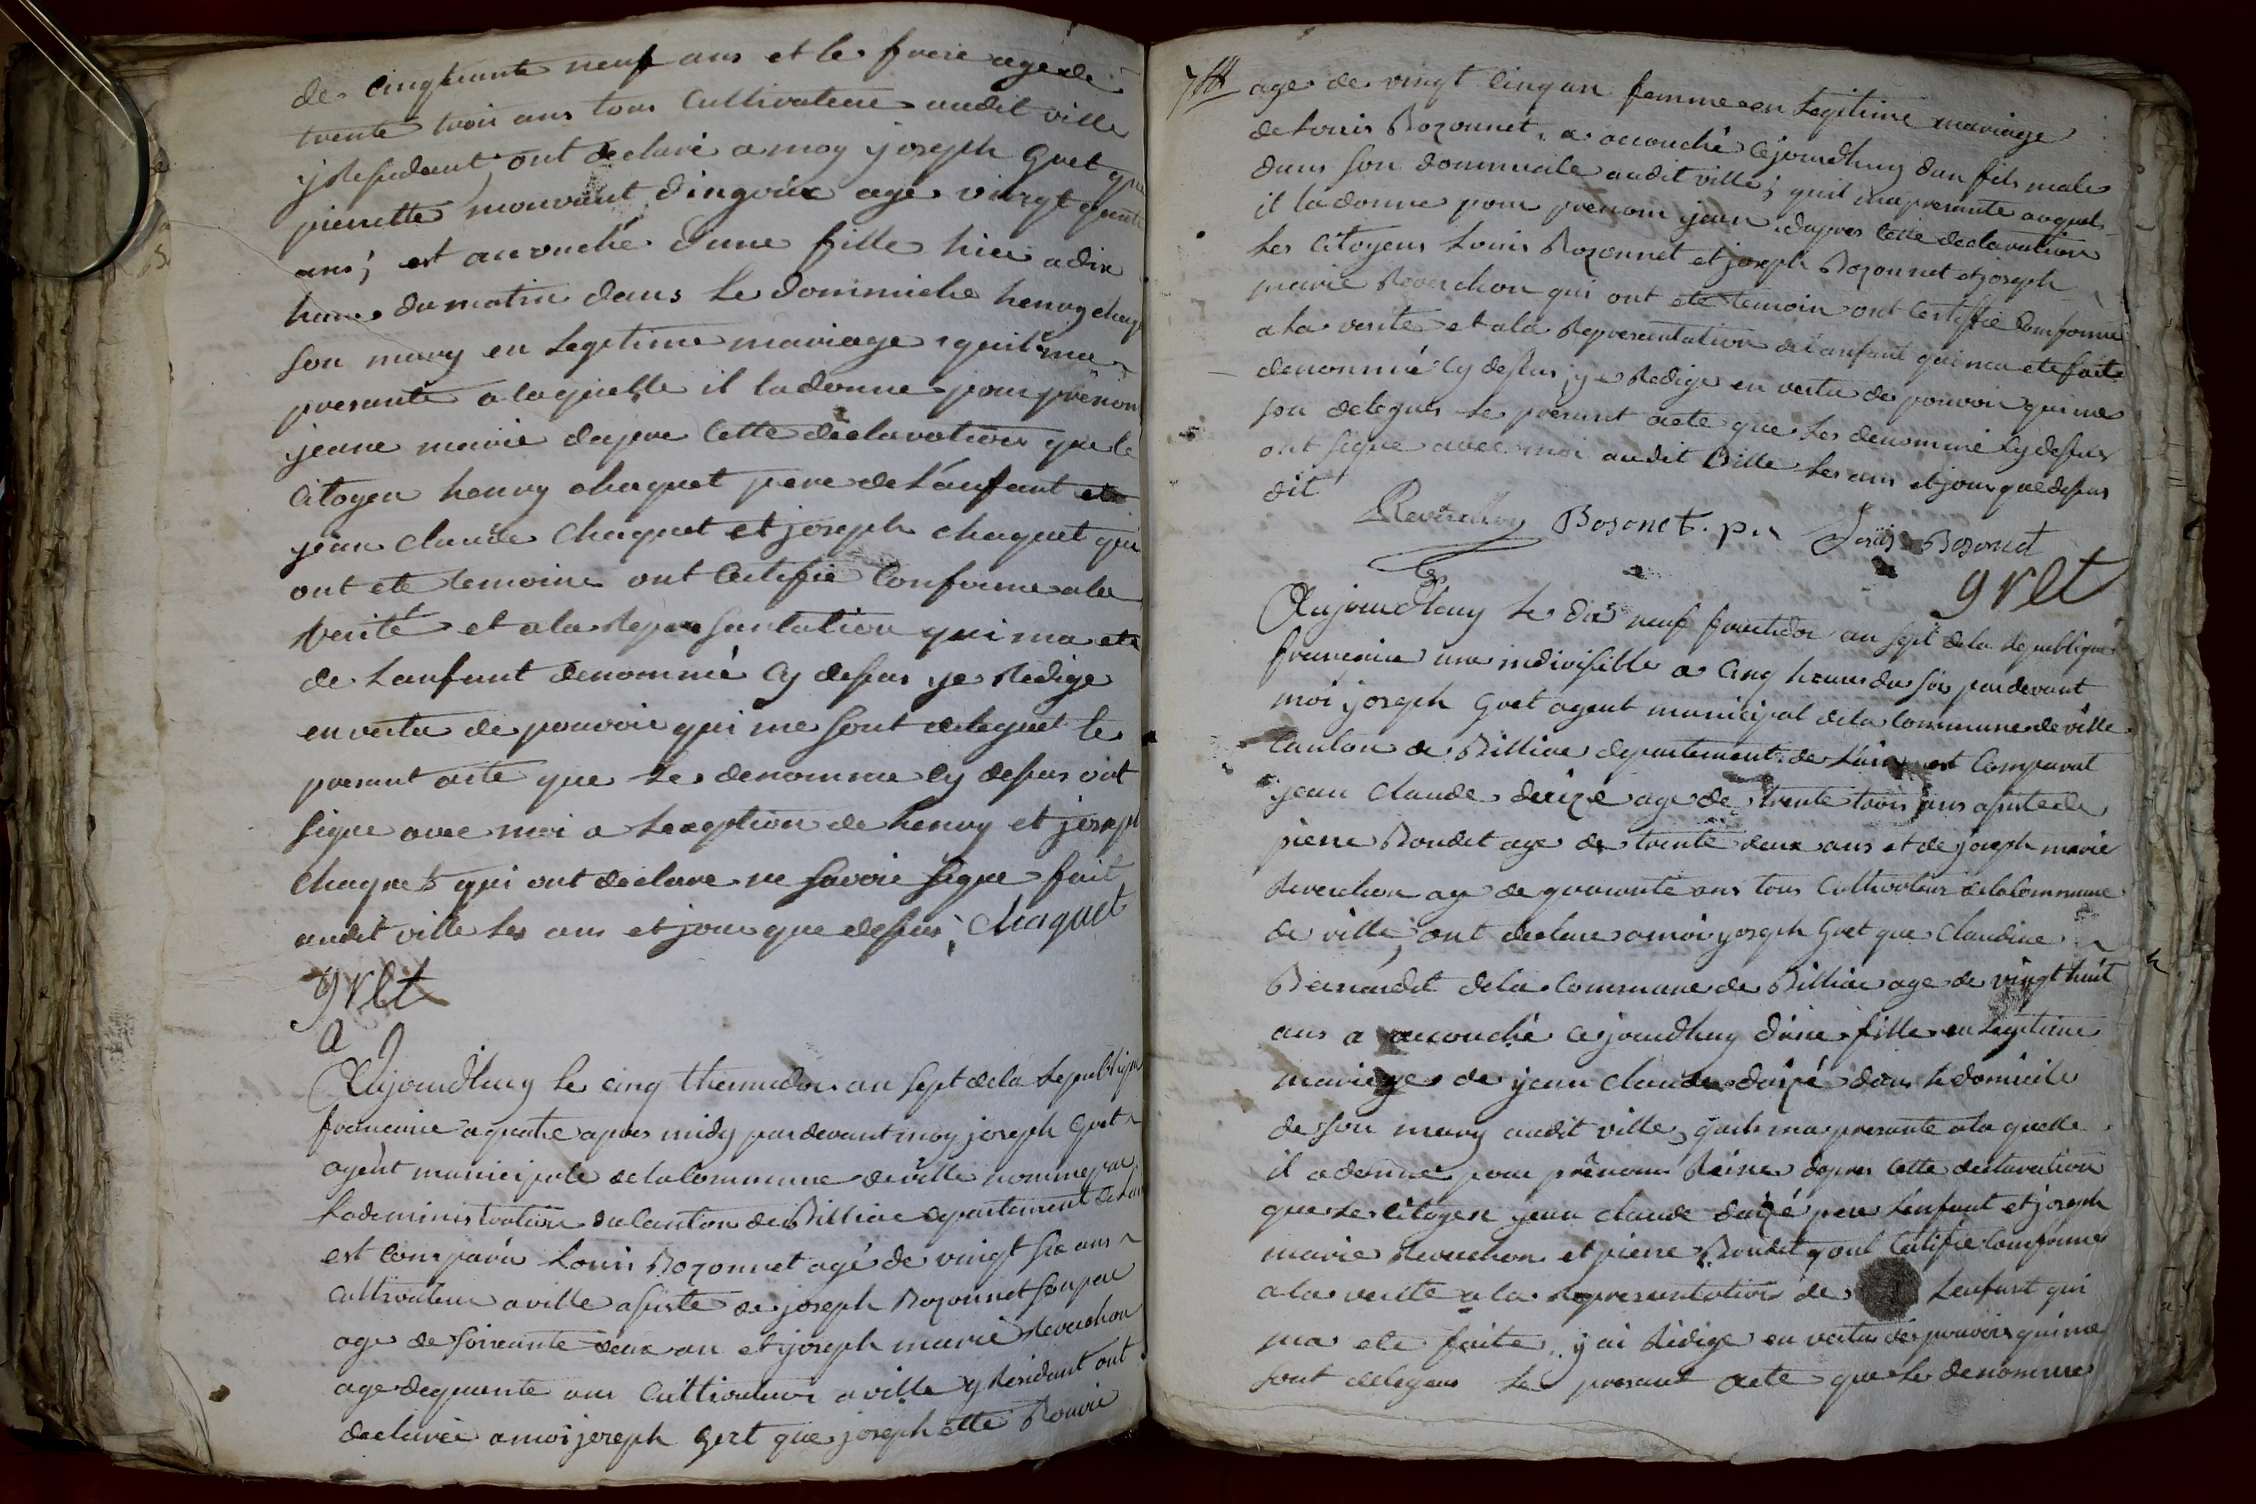 de cinquante neuf ans et le frere age de
trente trois ans tous Cultivateur audit ville
y Residant ont declaré a moy joseph Gret que
pierrette mouvant dingoux age vingt quatre
ans; est accouché dune fille hier a dix
heure du matin dans le dommicile henry chaq
son mary en Legitime mariage quil ma
presanté a laquelle il la donne pour prenom
jeane marie dapre Cette déclaration que le
Citoyen henry chaquet pere de L'anfant et
jean Claude Chaquet et joseph chaquet qui
ont ete temoins ont Certifié Conforme a la
verité et a la Representation qui ma ete
de Lanfant denommé Cy desus je Redige
en vertu de pouvoir qui me sont delegué le
presant acte que Le denomme Cy desus ont
signe avec moi a Lexeption de henry et joseph
Chaquet qui ont declare ne savoir signe fait
audit ville Les ans et jour que desus; Chaquet
gret
a g
Aujourdhuy Le cinq thermidor an sept de la Republique
francaise a quatre apres midy pardevant moy joseph Gret
agent municipale de la Commune de ville nomme par
Ladministration du Canton de Billiac departement de Lain
est Comparu Louis Bozonnet agé de vingt six ans
Cultivateur a ville asisté de joseph Bozonnet son pere
age de soixante deux an et joseph marie Reverchon
age de quarante ans Cultivateur a ville y Residant ont
declaré a moi joseph Gret que josephette Bouvié
age de vingt Cinq an femme en Legitime mariage
de Louis Bozonnet, a accouché Cejourdhuy dun fils male
dans son dommicile audit ville; quil ma presanté auquel
il la donne pour prenom jean dapres Cette declaration
Les Citoyens Louis Bozonnet et joseph Bozonnet et joseph
marie Reverchon qui ont eté temoin ont Certiffié Conforme
a la verité et a la Representation de l'anfant qui ma ete faite
denommé Cy desus, je Redige en vertu de pouvoir qui me
son delegues Le presant acte que Les denommé Cy desus
ont signe avec moi audit Ville Les ans et jour que desus
dit
Reverchon Bosonet. p. Louis Bosonet
gret
Aujourdhuy Le dix neuf fructidor an sept de la Republique
francaise une indivisible a Cinq heures du soir pardevant
moi joseph Gret agent municipal de la Commune de ville
Canton de Billiac departement de Lain est Comparut
jean Claude age de trente trois ans asisté de
pierre Boudet age de trente deux ans et de joseph marie
Reverchon age de quarante ans tous Cultivateur de la Commune
de ville; ont declaré a moi joseph Gret que Claudine
Bernardet de la Commune de Billiac age de vingt huit
ans a accouché Cejourdhuy d'une fille en Legitime
mariage de jean Claude dans le domicile
de son mary audit ville, quil ma presanté a la quelle
il a donné pour prénom Reine dapres Cette declaration
que Le Citoyen jean Claude pere Lenfant et joseph
marie Reverchon et pierre Boudet, ont Certifié Conforme
a la verité a la Representation de Lenfant qui
ma ete faite, j'ai Redige en vertu de pouvoir qui me
sont delegues Le presant acte que Le denommé